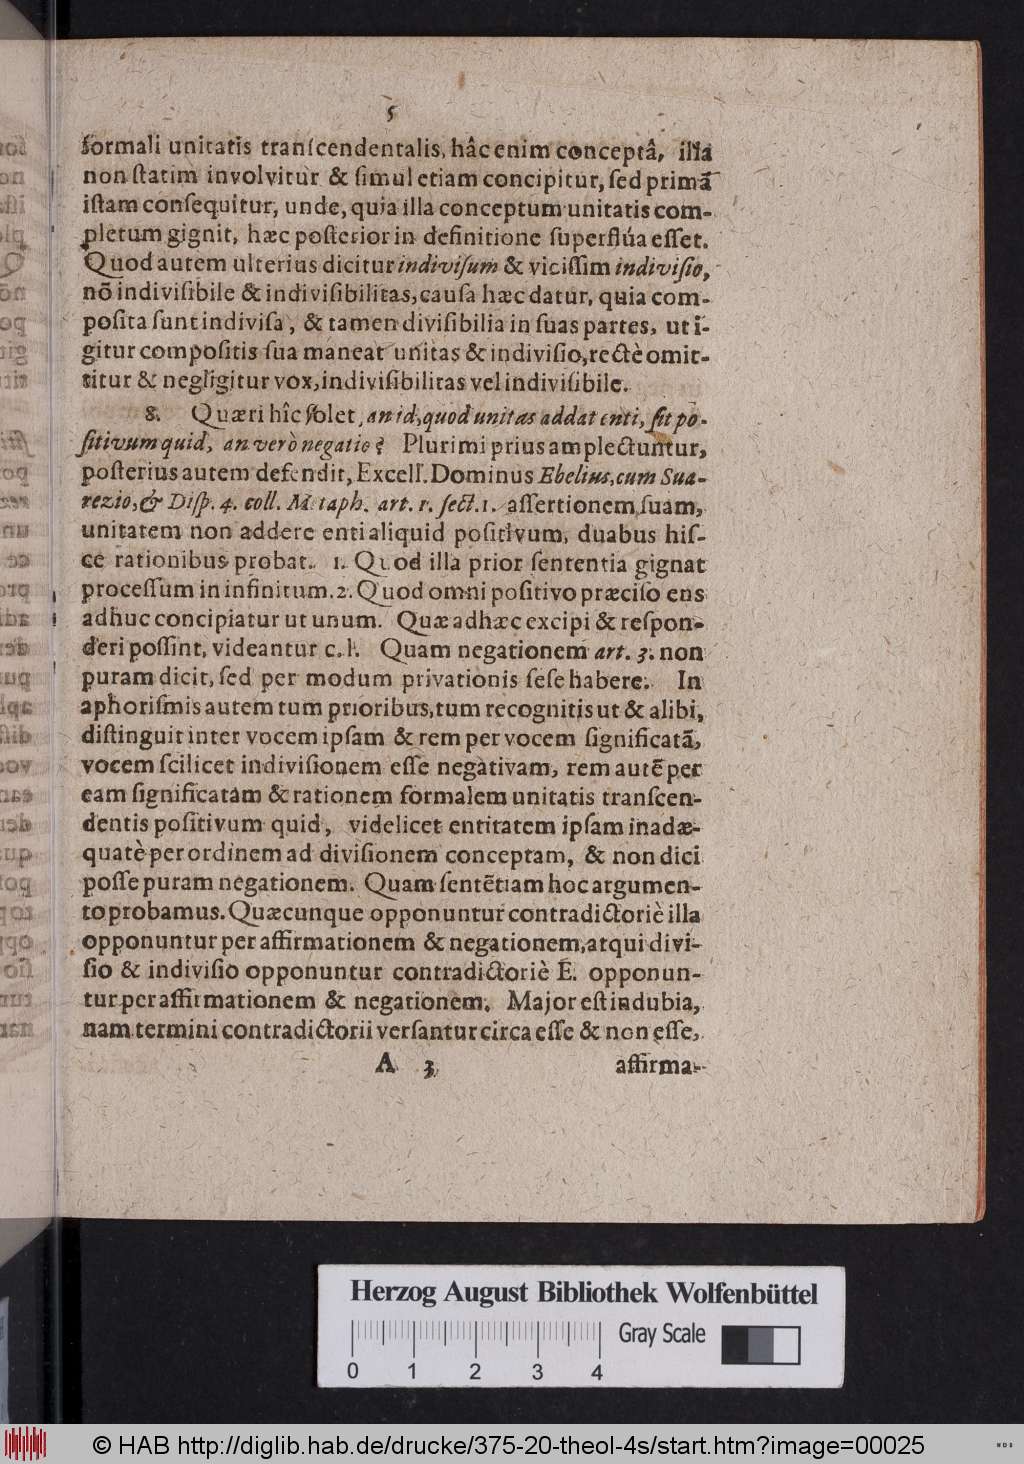 5
formali unitatis tranſcendentalis, hâc enim conceptâ, illa
non ſtatim involvitur & ſimul etiam concipitur, ſed primã
iſtam conſequitur, unde, quia illa conceptum unitatis com-
pletum gignit, hæc poſterior in definitione ſuperflúa eſſet.
Quod autem ulterius dicitur indiviſum & viciſſim indiviſio,
nõ indiviſibile & indiviſibilitas, cauſa hæc datur, quia com-
poſita ſunt indiviſa, & tamen diviſibilia in ſuas partes, ut i-
gitur compoſitis ſua maneat unitas & indiviſio, rectè omit-
titur & negligitur vox, indiviſibilitas vel indiviſibile.
8. Quæri hîc ſolet, an id, quod unitas addat enti, ſit po-
ſitivum quid, an verò negatio? Plurimi prius amplectuntur,
poſterius autem defendit, Excell. Dominus Ebelius, cum Sua-
rezio, & Diſp. 4. coll. Metaph. art. 1. ſect. 1. aſſertionem ſuam,
unitatem non addere enti aliquid poſitivum, duabus hiſ-
ce rationibus probat. 1. Quod illa prior ſententia gignat
proceſſum in infinitum. 2. Quod omni poſitivo præciſo ens
adhuc concipiatur ut unum. Quæ adhæc excipi & reſpon-
deri poſſint, videantur c. l. Quam negationem art. 3. non
puram dicit, ſed per modum privationis ſeſe habere. In
aphoriſmis autem tum prioribus, tum recognitis ut & alibi,
diſtinguit inter vocem ipſam & rem per vocem ſignificatã,
vocem ſcilicet indiviſionem eſſe negativam, rem autẽ per
eam ſignificatam & rationem formalem unitatis tranſcen-
dentis poſitivum quid, videlicet entitatem ipſam inadæ-
quatè per ordinem ad diviſionem conceptam, & non dici
poſſe puram negationem. Quam ſentẽtiam hoc argumen-
to probamus. Quæcunque opponuntur contradictoriè illa
opponuntur per affirmationem & negationem, atqui divi-
ſio & indiviſio opponuntur contradictoriè E. opponun-
tur per affirmationem & negationem. Major eſt indubia,
nam termini contradictorii verſantur circa eſſe & non eſſe,
A 3 affirma-
Herzog August Bibliothek Wolfenbüttel
Gray Scale
0 1 2 3 4
© HAB http://diglib.hab.de/drucke/375-20-theol-4s/start.htm?image=00025